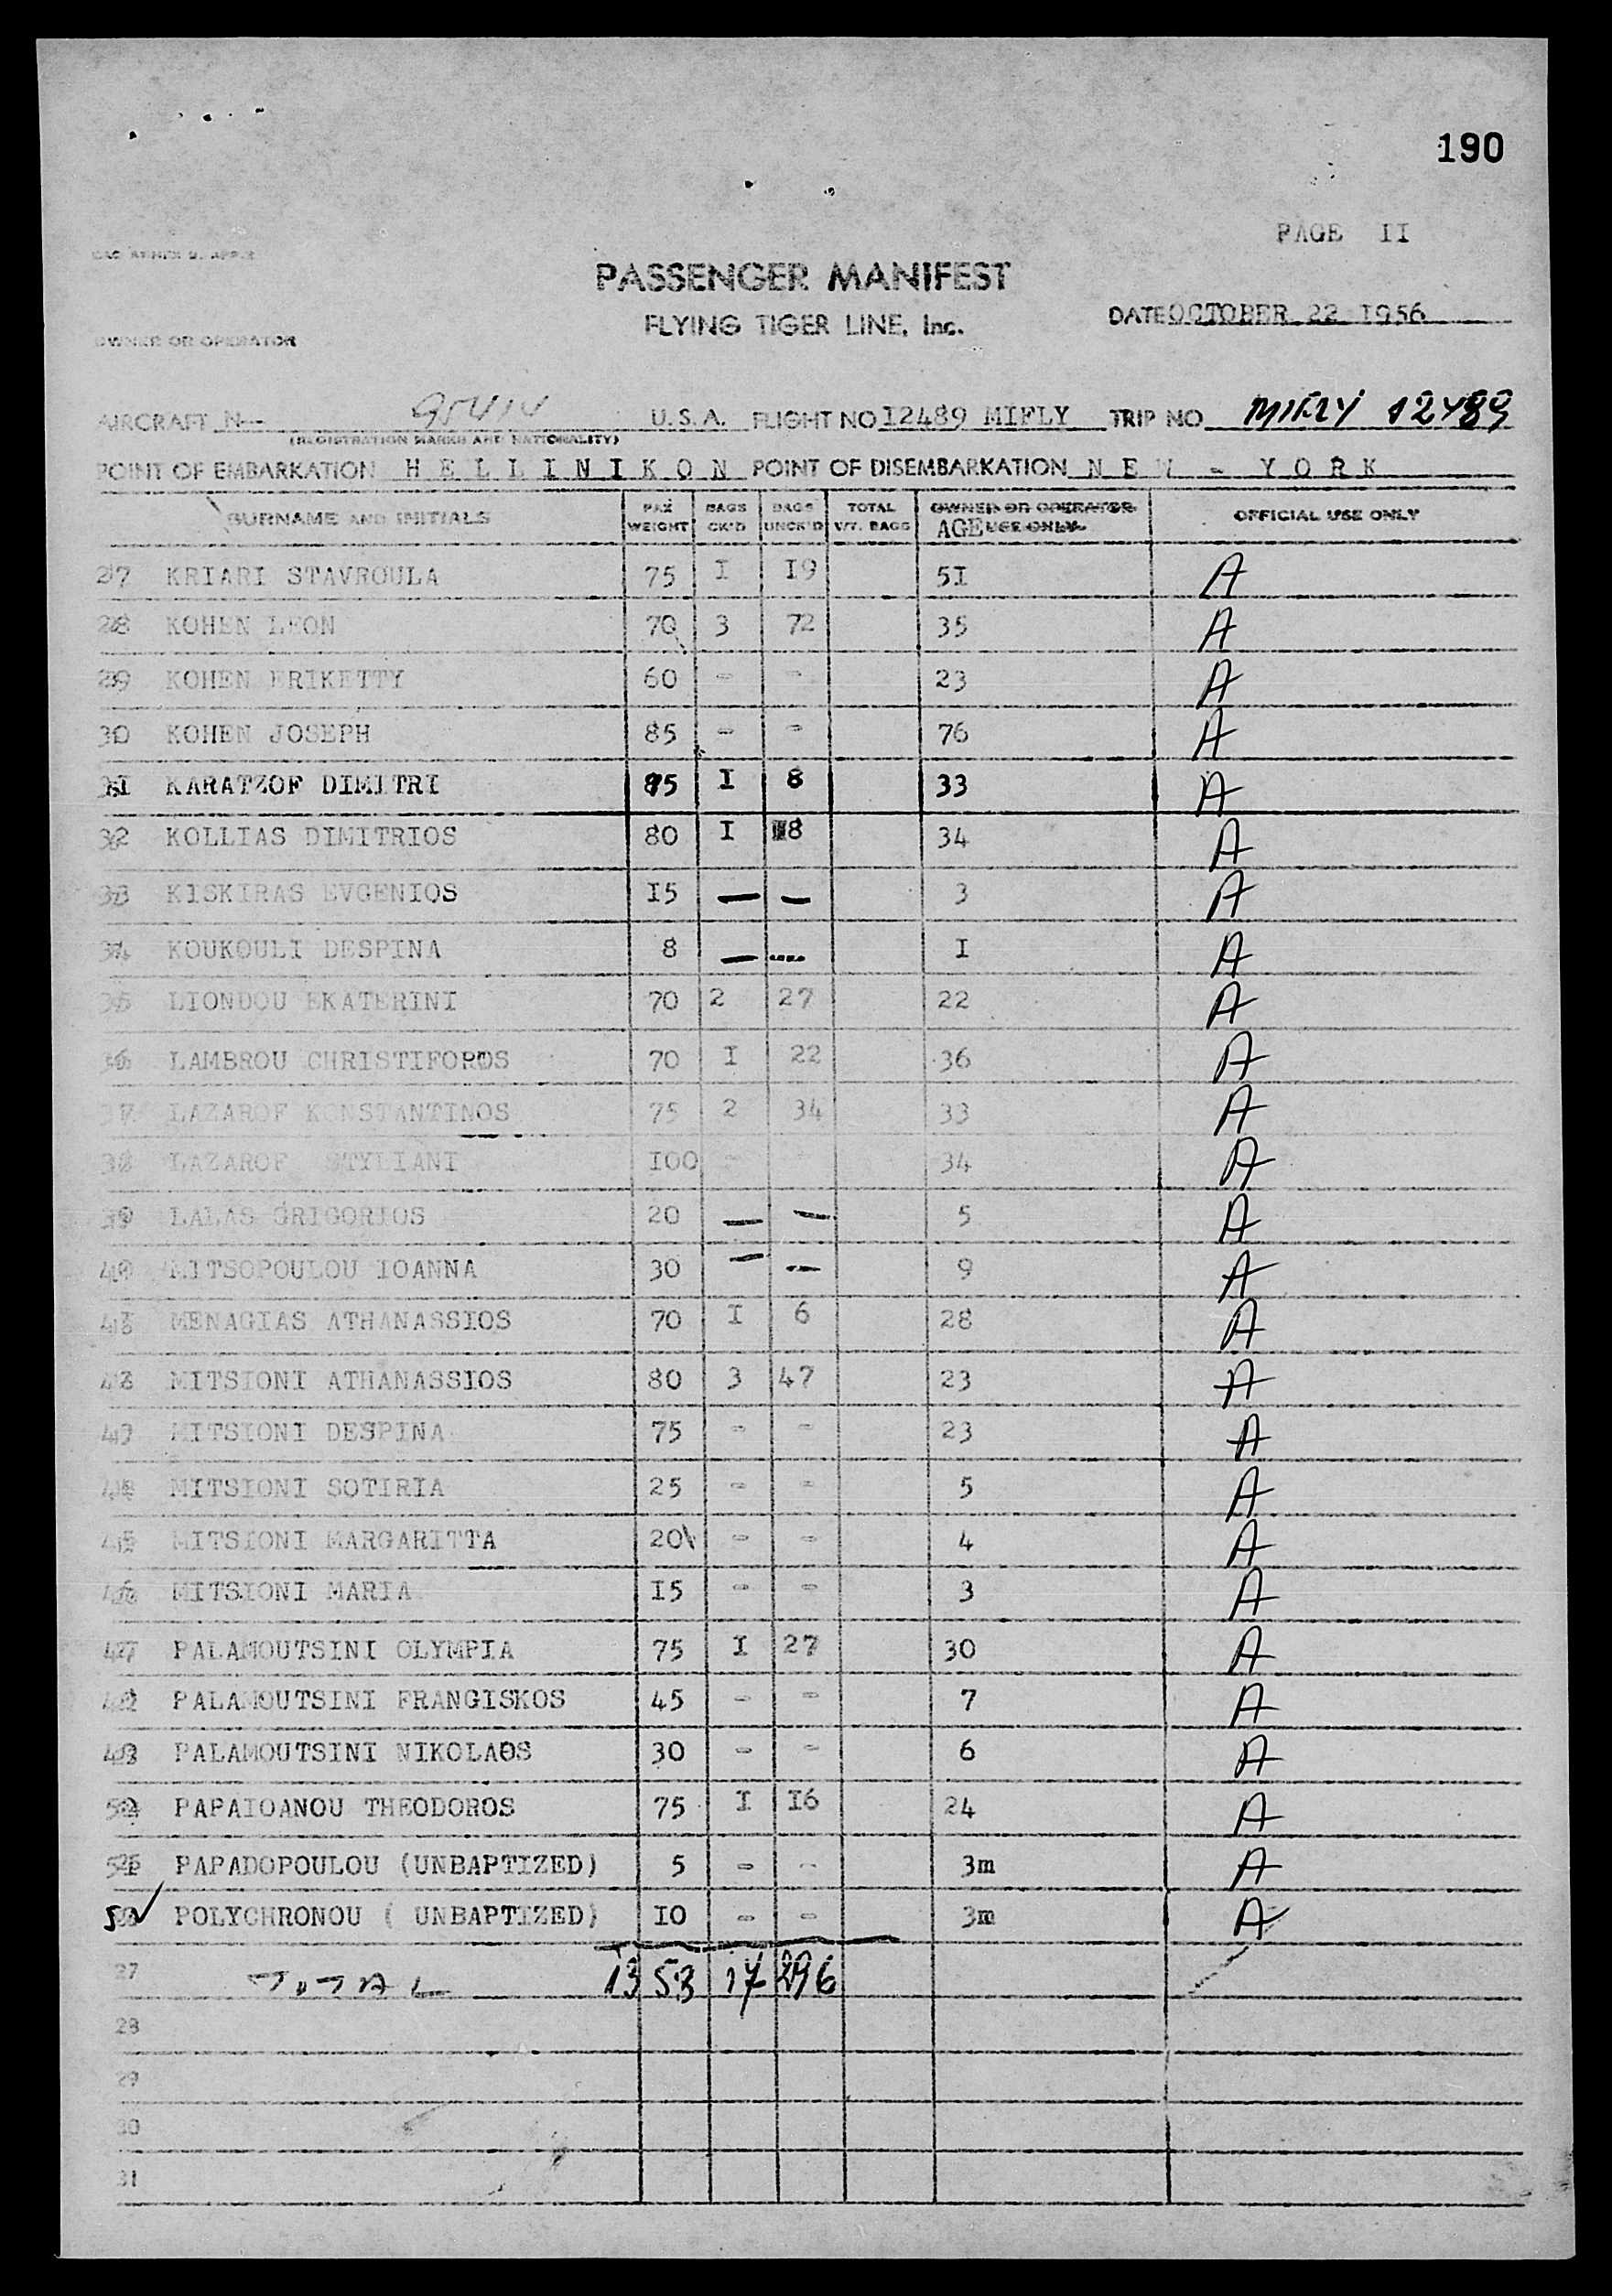 190
PAGE II
PASSENGER MANIFEST
FLYING TIGER LINE, Inc.
DATE OCTOBER 22 1956
OWNER OR OPERATOR
AIRCRAFT N-- U.S.A. FLIGHT NO I2489 MIFLY TRIP NO MIFLY 12489
(REGISTRATION MARKS AND NATIONALITY)
POINT OF EMBARKATION H E L L I N I K O N POINT OF DISEMBARKATION N E W - Y O R K
SURNAME AND INITIALS PAX WEIGHT BAGS CK'D BAGS UNCK'D TOTAL WT. BAGS OWNER OR OPERATOR USE ONLY AGE OFFICIAL USE ONLY
27 KRIARI STAVROULA 75 I I9 5I A
28 KOHEN LEON 70 3 72 35 A
29 KOHEN ERIKETTY 60 - - 23 A
30 KOHEN JOSEPH 85 - - 76 A
3I KARATZOF DIMITRI I 8 33 A
32 KOLLIAS DIMITRIOS 80 I 8 34 A
33 KISKIRAS EVGENIOS I5 — — 3 A
34 KOUKOULI DESPINA 8 — — I A
35 LIONDOU EKATERINI 70 2 27 22 A
36 LAMBROU CHRISTIFOROS 70 I 22 36 A
37 LAZAROF KONSTANTINOS 75 2 34 33 A
38 LAZAROF STYLIANI I00 - - 34 A
39 LALAS GRIGORIOS 20 — — 5 A
40 MITSOPOULOU IOANNA 30 — — 9 A
MENAGIAS ATHANASSIOS 70 I 6 28 A
MITSIONI ATHANASSIOS 80 3 47 23 A
MITSIONI DESPINA 75 - - 23 A
MITSIONI SOTIRIA 25 - - 5 A
MITSIONI MARGARITTA 20 - - 4 A
MITSIONI MARIA I5 - - 3 A
47 PALAMOUTSINI OLYMPIA 75 I 27 30 A
PALAMOUTSINI FRANGISKOS 45 - - 7 A
PALAMOUTSINI NIKOLAOS 30 - - 6 A
PAPAIOANOU THEODOROS 75 I I6 24 A
PAPADOPOULOU (UNBAPTIZED) 5 - - 3m A
POLYCHRONOU ( UNBAPTIZED) I0 - - 3m A
27 TOTAL 1353 17 296
28
29
30
31